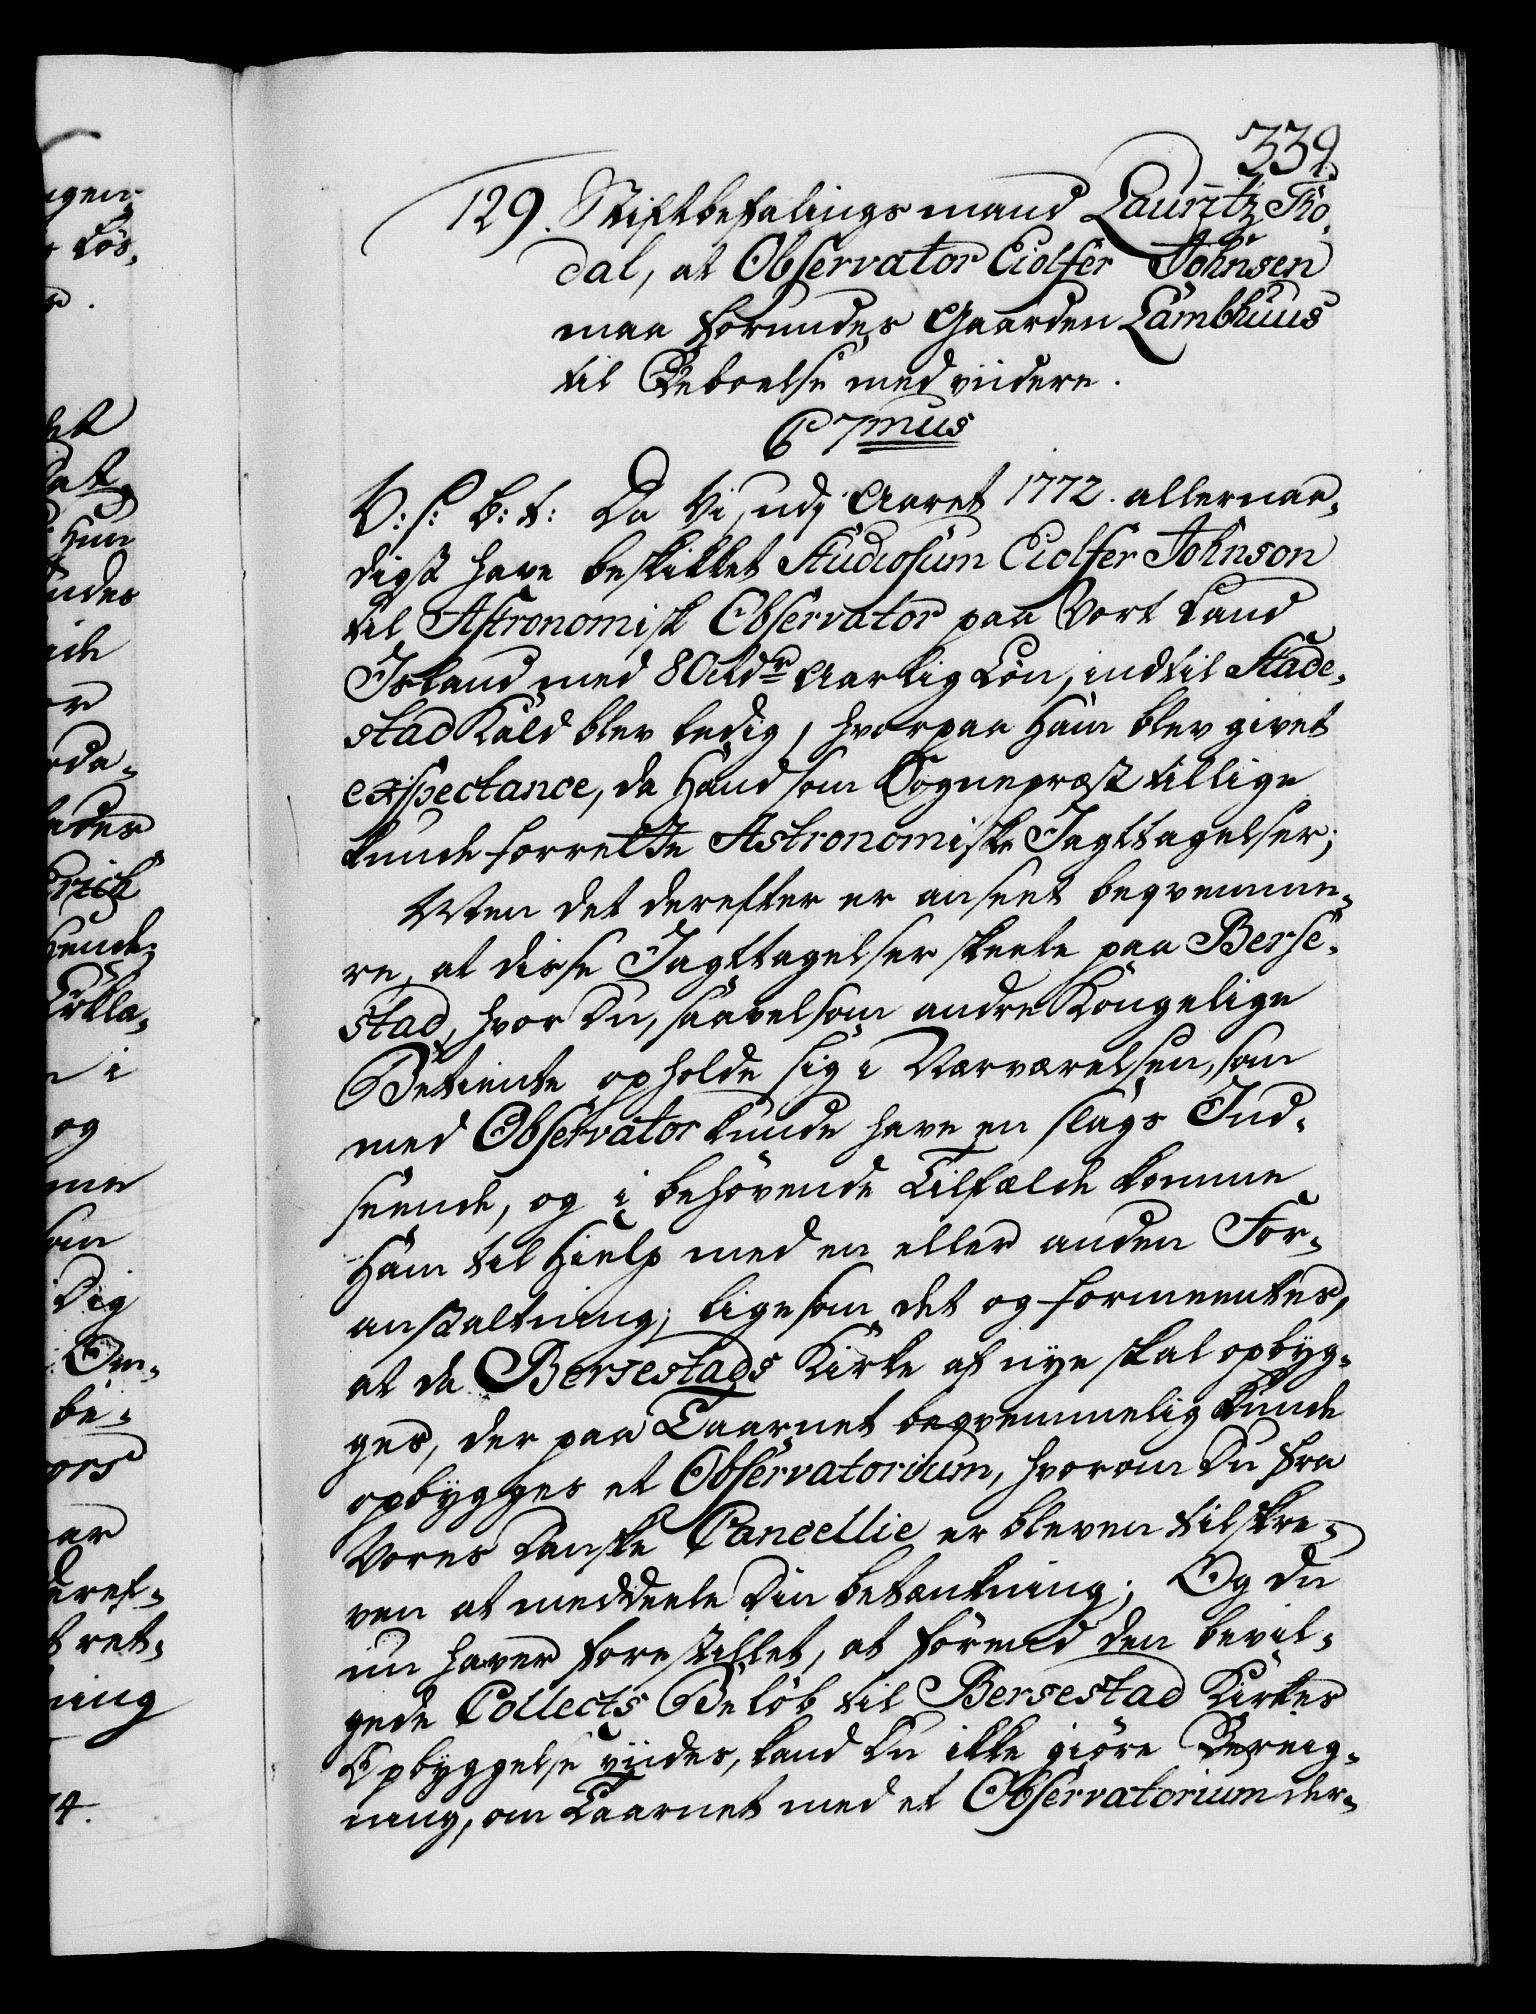 339.
129. Stiftbefalingsmand Lauritz Tho-
dal, at Observator Eiolfer Johnsen
maa forundes Gaarden Lambhuus
til Beboelse med viidere.
C 7mus
V: S: B: T: Da Vi udj Aaret 1772. allernaa-
digst have beskikket Studiosum Eiolfer Johnson
til Astronomisk Observator paa Vort Land
Island med 80 rdr Aarlig Løn, indtil Stade-
stad Kald blev ledig, hvorpaa Ham blev givet
exspectance, da Hand som Sognepræst tillige
kunde forrette Astronomiske Iagttagelser;
Men det derefter er anseet beqvemme-
re, at disse Iagttagelser skeete paa Berse-
stad, hvor Du, saavelsom andre Kongelige
Betiente opholde sig i Nærværelsen, som
med Observator kunde have en slags Ind-
seende, og i behøvende Tilfælde komme
Ham til Hielp med en eller anden For-
anstaltning; ligesom det og formeentes,
at da Bersestads Kirke af nye skal opbyg-
ges, der paa Taarnet beqvemmelig kunde
opbygges et Observatorium, hvorom Du fra
Vores Danske Cancellie er bleven tilskre-
ven at meddeele Din betænkning; Og Du
nu haver forestillet, at førend den bevil-
gede Collects Beløb til Bersestad Kirkes
Opbyggelse vides, kand Du ikke giøre Bereig-
ning, om Taarnet med et Observatorium der-